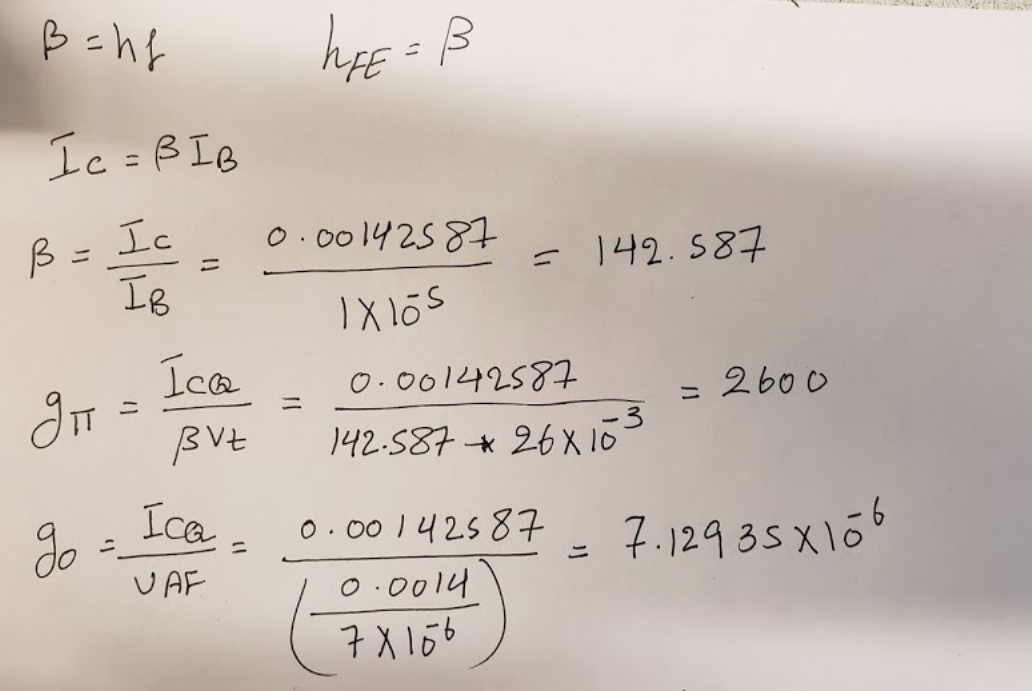 β = hf hFE = β
Ic = β IB
β = Ic / IB = 0.00142587 / 1 X 10^-5 = 142.587
gπ = ICQ / βVt = 0.00142587 / 142.587 * 26 X 10^-3 = 2600
go = ICQ / VAF = 0.00142587 / (0.0014 / 7 X 10^-6) = 7.12935 X 10^-6